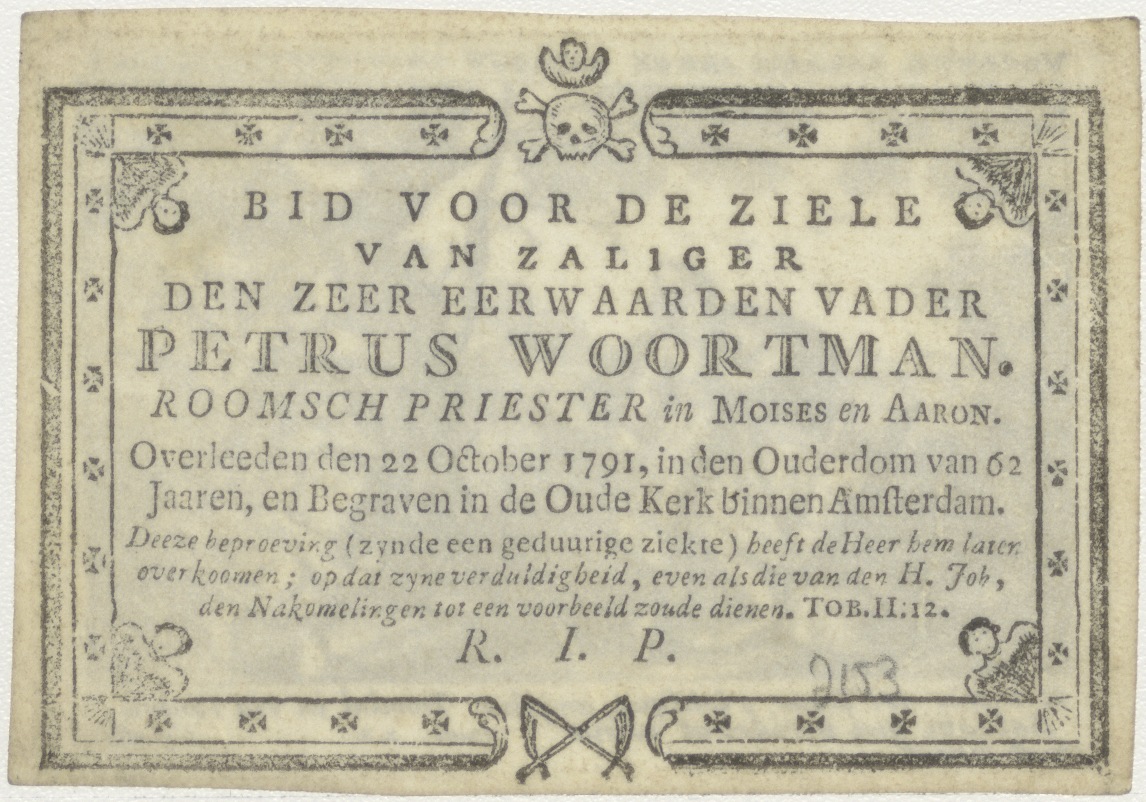 BID VOOR DE ZIELE
VAN ZAL1GER
DEN ZEER EERWAARDEN VADER
PETRUS WOORTMAN.
ROOMSCH PRIESTER in MOISES en AARON.
Overleeden den 22 October 1791, in den Ouderdom van 62
Jaaren, en Begraven in de Oude Kerk binnen Amsterdam.
Deeze beproeving (zynde een geduurige ziekte) heeft de Heer hem laten
overkoomen; op dat zyne verduldigheid, even als die van den H. Job,
den Nakomelingen tot een voorbeeld zoude dienen. TOB.II:12.
R. I. P.
2153